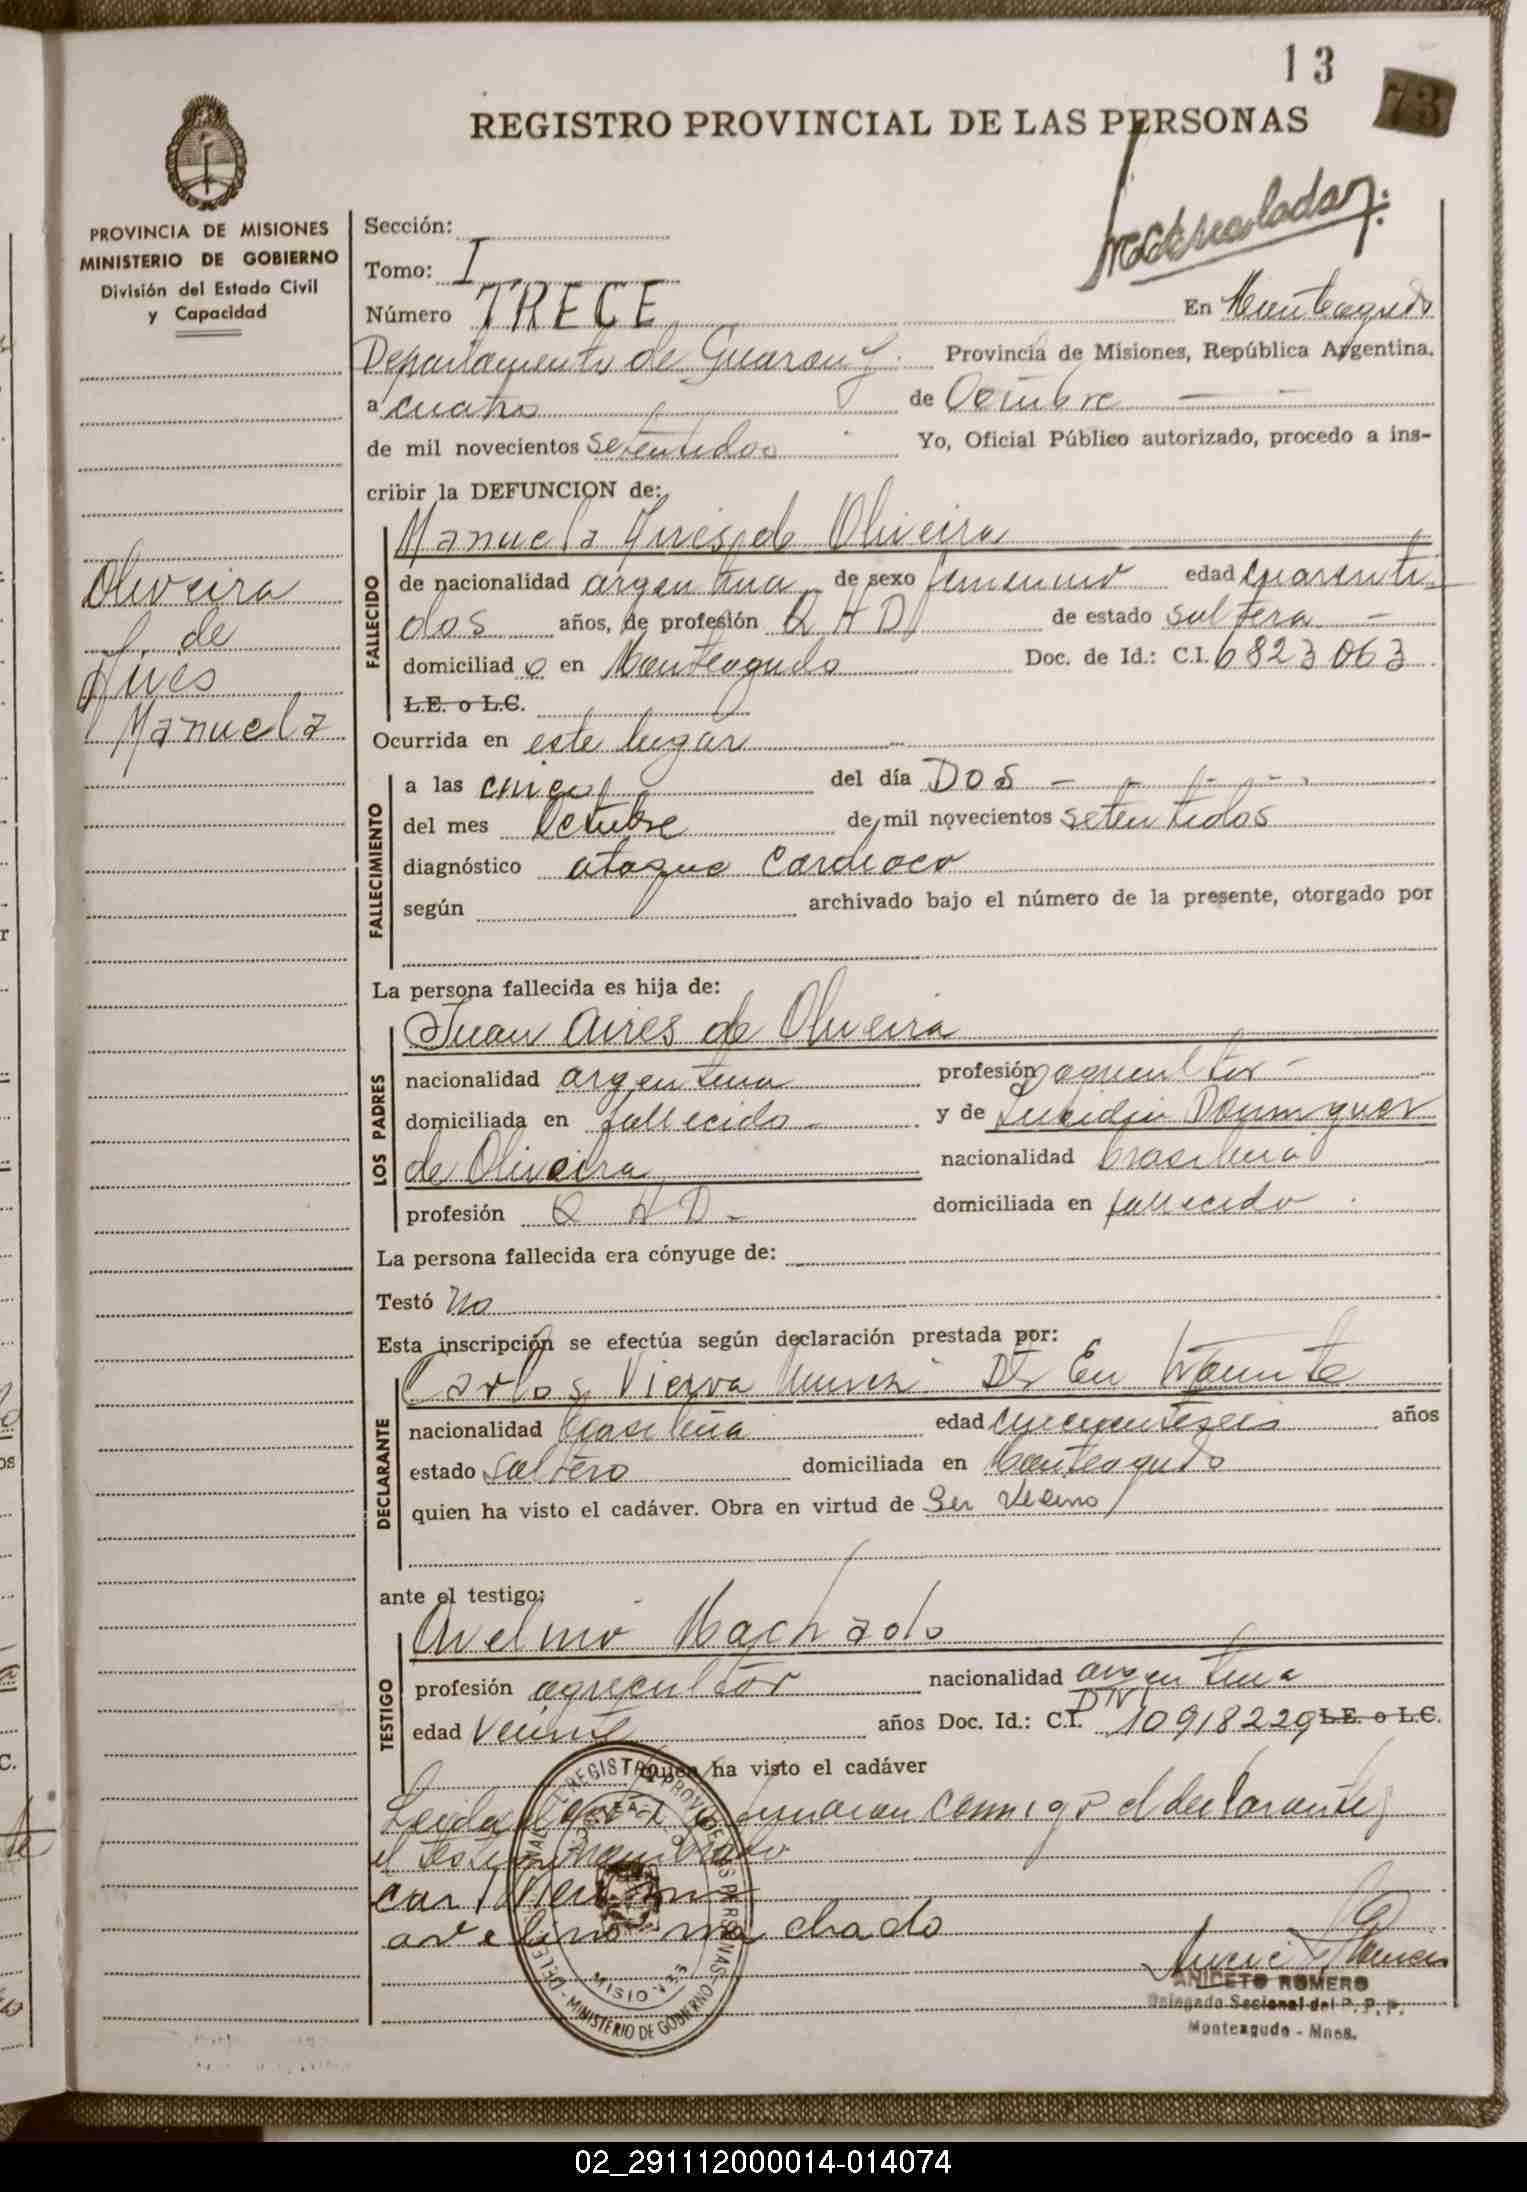 13
73
REGISTRO PROVINCIAL DE LAS PERSONAS
PROVINCIA DE MISIONES
MINISTERIO DE GOBIERNO
División del Estado Civil
y Capacidad
Oliveira
de
Aires
Manuela
Sección:
Tomo: I
Número TRECE En Monteagudo
Departamento de Guarany. Provincia de Misiones, República Argentina.
a cuatro de Octubre
de mil novecientos setentidos Yo, Oficial Público autorizado, procedo a ins-
cribir la DEFUNCION de:
FALLECIDO
Manuela Aires de Oliveira
de nacionalidad argentina de sexo femenino edad cuarenti-
dos años, de profesión Q H D de estado soltera -
domiciliad o en Monteagudo Doc. de Id.: C.I. 6823063
L.E. o L.C.
Ocurrida en este lugar
FALLECIMIENTO
a las cinco del día DOS
del mes Octubre de mil novecientos setentidos
diagnóstico ataque cardiaco
según archivado bajo el número de la presente, otorgado por
La persona fallecida es hija de:
LOS PADRES
Juan Aires de Oliveira
nacionalidad argentina profesión agricultor -
domiciliada en fallecido - y de Dominguez
de Oliveira nacionalidad brasileña
profesión Q H D - domiciliada en fallecido .
La persona fallecida era cónyuge de:
Testó No
Esta inscripción se efectúa según declaración prestada por:
DECLARANTE
Carlos Vieira En Tramite
nacionalidad brasileña edad cincuentiseis años
estado Soltero domiciliada en Monteagudo
quien ha visto el cadáver. Obra en virtud de Ser Vecino
ante el testigo:
TESTIGO
Avelino Machado
profesión agricultor nacionalidad argentina
DNI
edad Veinte años Doc. Id.: C.I. 10918229 L.E. o L.C.
quien ha visto el cadáver
Leida el acta firmaran conmigo el declarante y
el testigo nombrado
avelino machado
REGISTRO PROV. DE LAS PERSONAS
MINISTERIO DE GOBIERNO
MISIONES
ANICETO ROMERO
Delegado Seccional del R. P. P.
Monteagudo - Mnes.
02_291112000014-014074